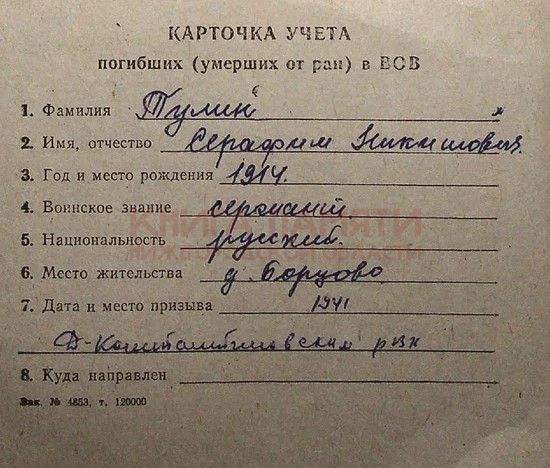 КАРТОЧКА УЧЕТА
погибших (умерших от ран) в ВОВ
1. Фамилия Тулин
2. Имя, отчество Серафим
3. Год и место рождения 1914.
4. Воинское звание сержант
5. Национальность русский.
6. Место жительства д. Борцово
7. Дата и место призыва 1941
Д-Константиновским рвк
8. Куда направлен
Зак. № 4853, т. 120000
КНИГА ПАМЯТИ
НИЖЕГОРОДСКОЙ ОБЛАСТИ